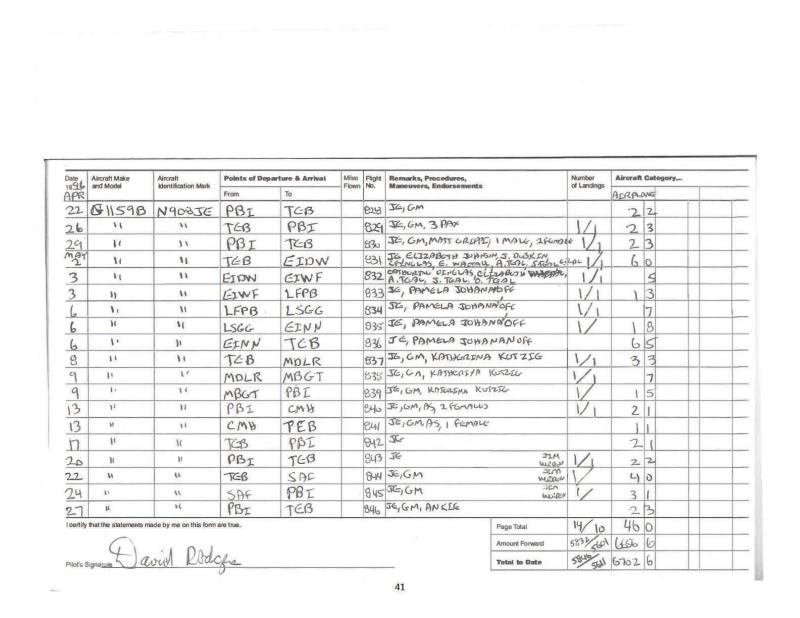 Date 1996 Aircraft Make and Model Aircraft Identification Mark Points of Departure & Arrival Miles Flown Flight No. Remarks, Procedures, Maneuvers, Endorsements Number of Landings Aircraft Category...
APR From To AIRPLANE
22 G1159B N908JE PBI TEB 828 JE, GM 2 2
26 " " TEB PBI 829 JE, GM, 3 PAX 1/1 2 3
29 " " PBI TEB 830 JE, GM, 1 MALE, 2 FEMALE 1/1 2 3
MAY
2 " " TEB EIDW 831 JE, ELIZABETH JOHNSON, 1/1 6 0
3 " " EIDW EIWF 832 1/1 5
3 " " EIWF LFPB 833 JE, PAMELA JOHANANOFF 1/1 1 3
6 " " LFPB LSGG 834 JE, PAMELA JOHANANOFF 1/1 7
6 " " LSGG EINN 835 JE, PAMELA JOHANANOFF 1/ 1 8
6 " " EINN TEB 836 JE, PAMELA JOHANANOFF 6 5
8 " " TEB MDLR 837 JE, GM, KATHERINA KOTZIG 1/1 3 3
9 " " MDLR MBGT 838 JE, GM, KATHERINA KOTZIG 1/ 7
9 " " MBGT PBI 839 JE, GM, KATERINA KOTZIG 1/ 1 5
13 " " PBI CMH 840 JE, GM, AS, 2 FEMALES 1/1 2 1
13 " " CMH TEB 841 JE, GM, AS, 1 FEMALE 1 1
17 " " TEB PBI 842 JE 2 1
20 " " PBI TEB 843 JE JIM 1/1 2 2
22 " " TEB SAF 844 JE, GM JIM 1/ 4 0
24 " " SAF PBI 845 JE, GM JIM 1/ 3 1
27 " " PBI TEB 846 JE, GM, ANKIE 2 3
I certify that the statements made by me on this form are true. Page Total 14/10 46 0
Amount Forward 5832/5601 6656 6
Pilot's Signature David Rodgers Total to Date 5846/5611 6702 6
41